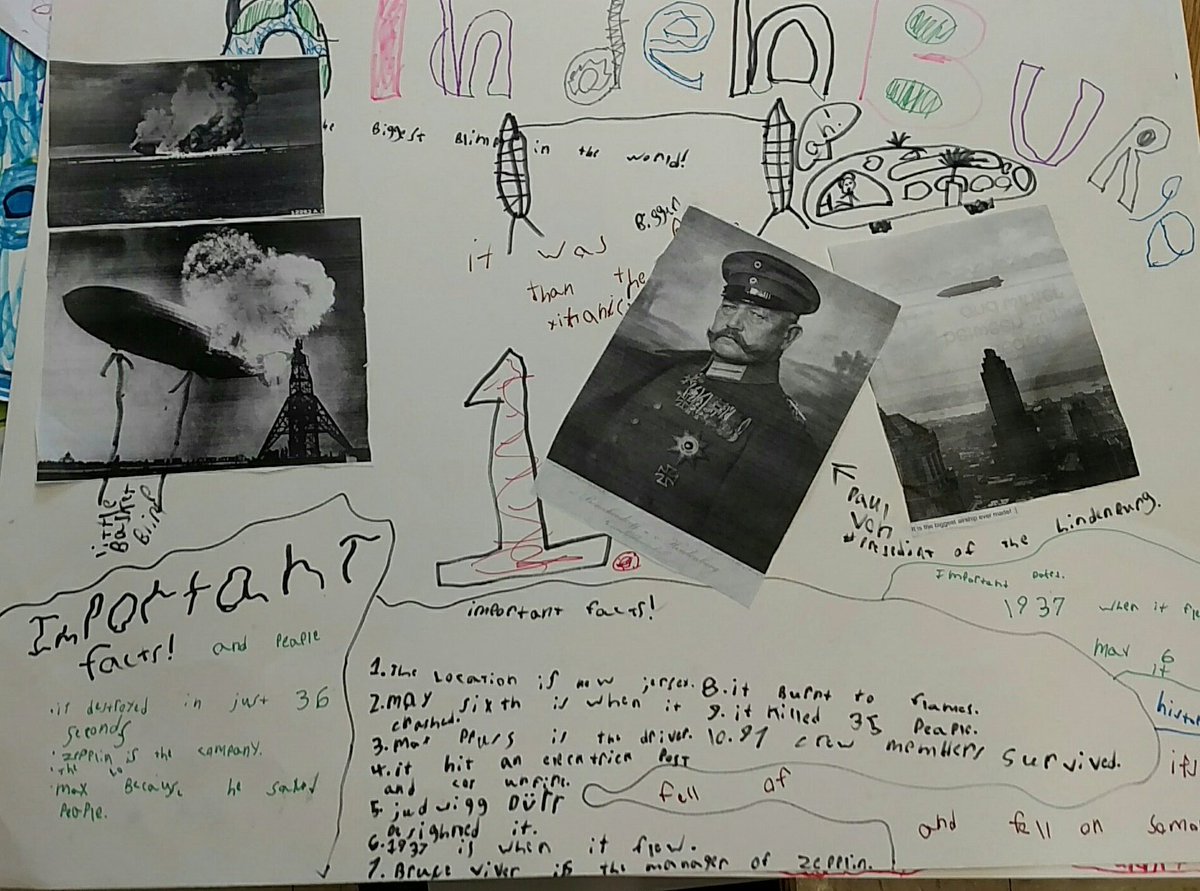 HindenBURg
the Biggest Blimp in the world!
ah!
it was Bigger
than the
titanic!
Little Basket
Paul
Von
It is the biggest airship ever made!
president of the hindenburg.
Important
facts!
and People
is destroyed in just 36
seconds
zepplin is the company.
max Because he saved
People.
important facts!
1. The Location is new jersey.
2. May sixth is when it
crashed.
3. Max Pruss is the driver.
4. it hit an Post
and
5. Dürr
6. 1937 is when it flew.
7. Bruce is the manager of zepplin.
8. it Burnt to flames.
9. it killed 35 People.
10. 97 crew members survived.
important Dates.
1937 when it
may 6
it
fell of
and fell on
its